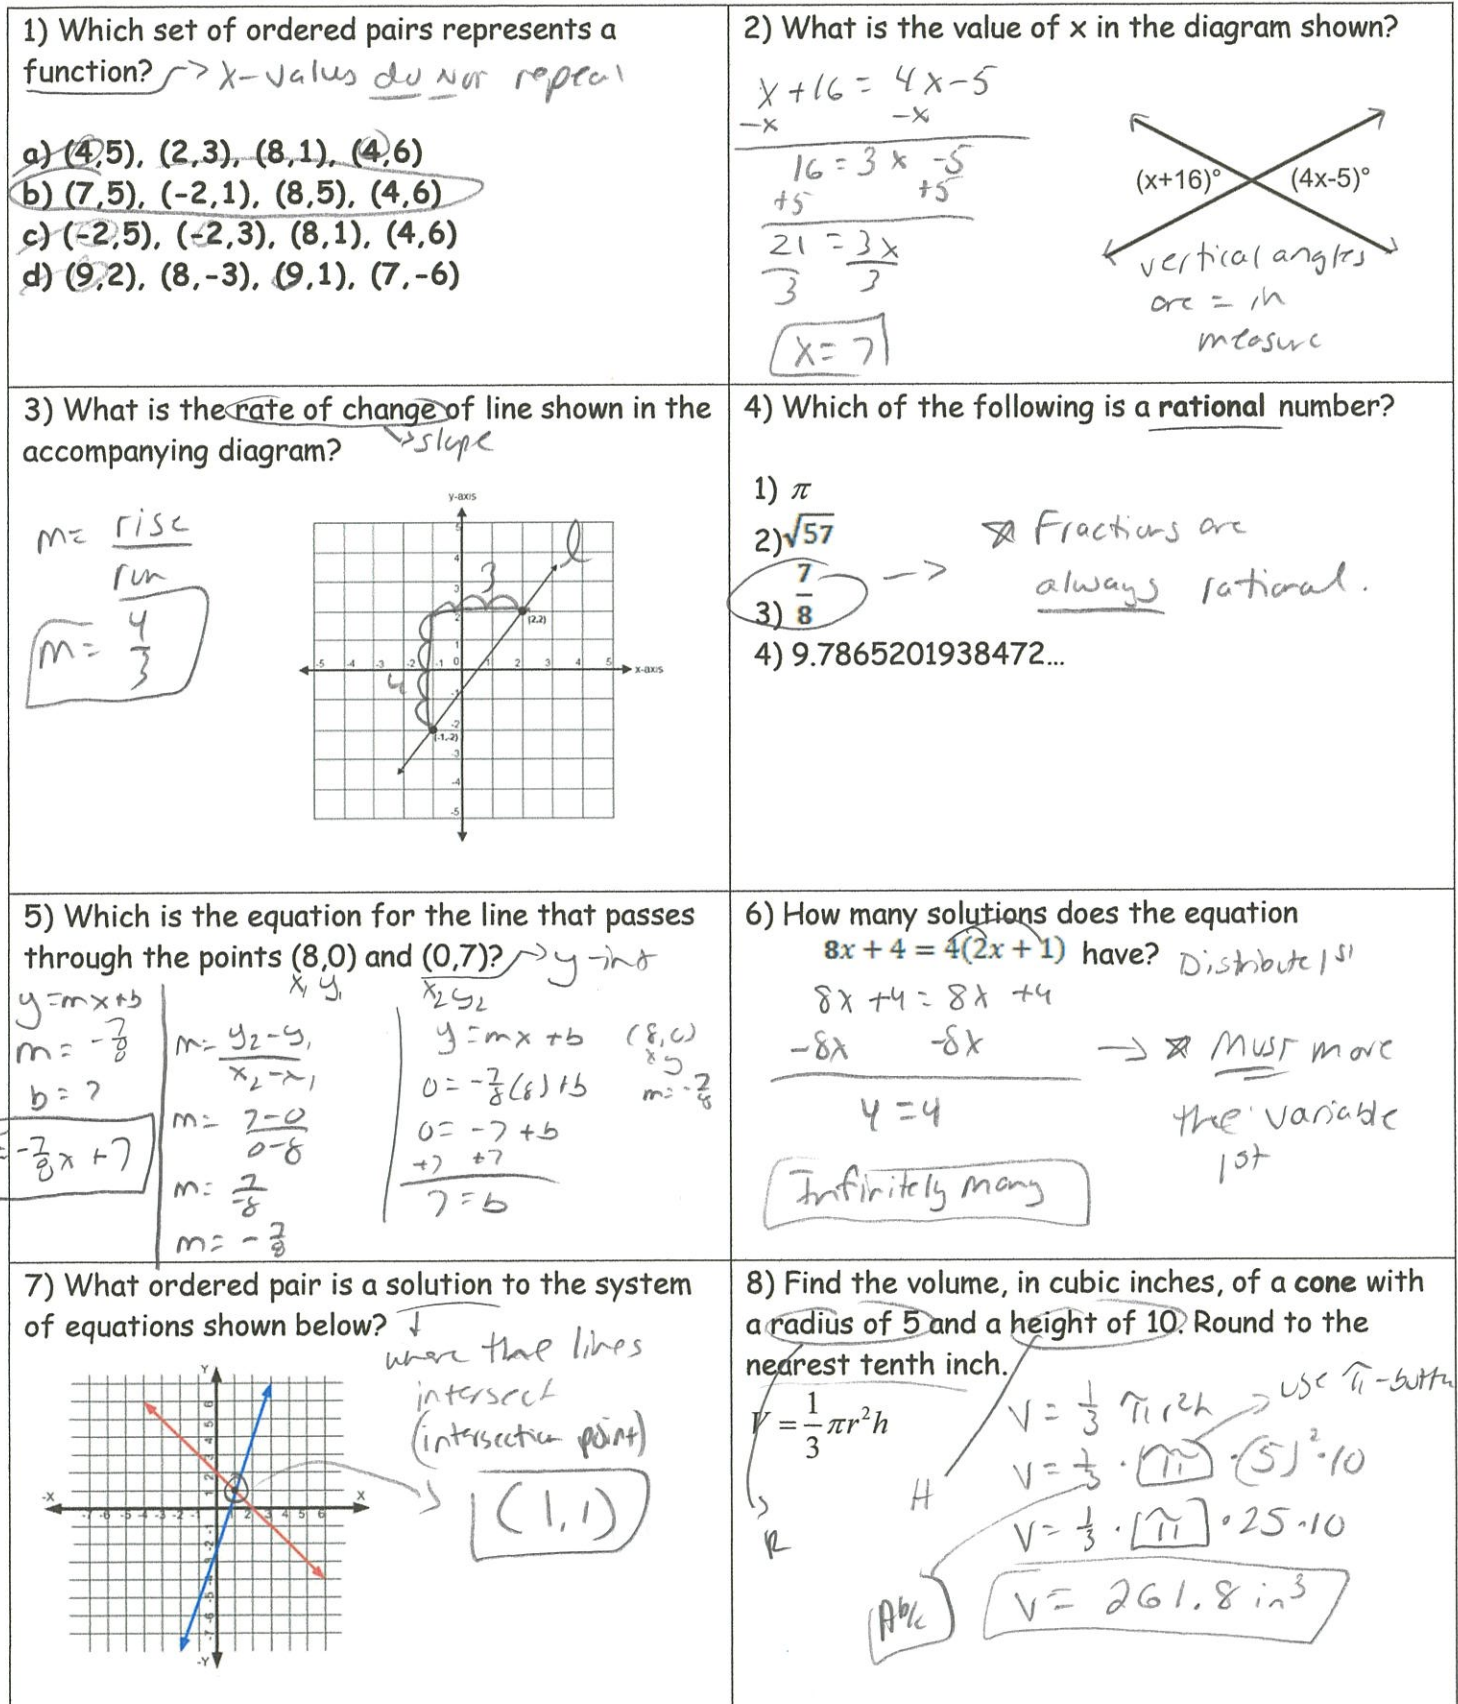 1) Which set of ordered pairs represents a
function? → x-values do not repeat
a) (4,5), (2,3), (8,1), (4,6)
b) (7,5), (-2,1), (8,5), (4,6)
c) (-2,5), (-2,3), (8,1), (4,6)
d) (9,2), (8,-3), (9,1), (7,-6)
2) What is the value of x in the diagram shown?
x+16 = 4x-5
-x -x
16 = 3x -5
+5 +5
21 = 3x
3 3
x = 7
(x+16)° (4x-5)°
vertical angles
are = in
measure
3) What is the rate of change of line shown in the
accompanying diagram?
→ slope
m = rise
run
m = 4
3
y-axis
l
3
4
(2,2)
x-axis
(-1,-2)
-5 -4 -3 -2 -1 0 1 2 3 4 5
4) Which of the following is a rational number?
1) π
2) √57
3) 7/8 → * Fractions are
always rational.
4) 9.7865201938472...
5) Which is the equation for the line that passes
through the points (8,0) and (0,7)? → y-int
x₁ y₁ x₂ y₂
y=mx+b
m = -7/8
b = 7
= -7/8x +7
m= y₂-y₁
x₂-x₁
m= 7-0
0-8
m= 7
-8
m= -7/8
y = mx + b (8,0)
x y
0 = -7/8(8)+b m=-7/8
0 = -7 + b
+7 +7
7 = b
6) How many solutions does the equation
8x + 4 = 4(2x + 1) have? Distribute 1st
8x +4 = 8x +4
-8x -8x → * Must move
4 = 4 the variable
1st
Infinitely many
7) What ordered pair is a solution to the system
of equations shown below? ↓
where the lines
intersect
(intersection point)
(1,1)
Y
-X X
-Y
8) Find the volume, in cubic inches, of a cone with
a radius of 5 and a height of 10. Round to the
nearest tenth inch.
V = 1/3 πr²h
R
H
V = 1/3 πr²h → use π-button
V = 1/3 · π · (5)² · 10
V = 1/3 · π · 25 · 10
V = 261.8 in³